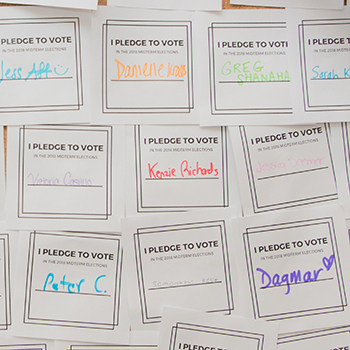 I PLEDGE TO VOTE
IN THE 2018 MIDTERM ELECTIONS
Jess
I PLEDGE TO VOTE
IN THE 2018 MIDTERM ELECTIONS
I PLEDGE TO VOTE
IN THE 2018 MIDTERM ELECTIONS
GREG
SHANAHA
I PLEDGE TO VOTE
IN THE 2018 MIDTERM ELECTIONS
Sarah K
I PLEDGE TO VOTE
IN THE 2018 MIDTERM ELECTIONS
I PLEDGE TO VOTE
IN THE 2018 MIDTERM ELECTIONS
Kenzie Richards
I PLEDGE TO VOTE
IN THE 2018 MIDTERM ELECTIONS
I PLEDGE TO VOTE
IN THE 2018 MIDTERM ELECTIONS
Peter C.
I PLEDGE TO VOTE
IN THE 2018 MIDTERM ELECTIONS
I PLEDGE TO VOTE
IN THE 2018 MIDTERM ELECTIONS
Dagmar
I PLEDGE TO VOTE